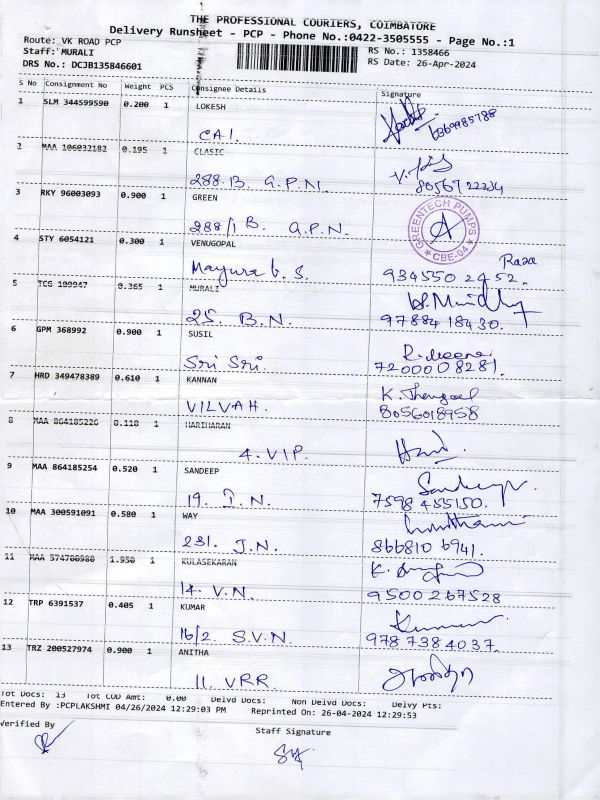 THE PROFESSIONAL COURIERS, COIMBATORE
Delivery Runsheet - PCP - Phone No.:0422-3505555 - Page No.:1
Route: VK ROAD PCP RS No.: 1358466
Staff: MURALI RS Date: 26-Apr-2024
DRS No.: DCJB135846601
S No Consignment No Weight PCS Consignee Details Signature
1 SLM 344599590 0.200 1 LOKESH
CAI. 6369985788
2 MAA 106032182 0.195 1 CLASIC
288.B. G.P.N. 8056722234
3 RKY 96003093 0.900 1 GREEN
GREENTECH PUMPS CBE-04
288/1 B. G.P.N.
4 STY 6054121 0.300 1 VENUGOPAL
Raza
Mayura G. S. 934550 2452.
5 TCG 109947 0.365 1 MURALI
25. B.N. 97884 18430.
6 GPM 368992 0.900 1 SUSIL
Sri Sri. 7200008281.
7 HRD 349478389 0.610 1 KANNAN
VILVAH. 8056018958
8 MAA 864185226 0.110 1 HARIHARAN
4. VIP.
9 MAA 864185254 0.520 1 SANDEEP
19. I.N. 7598 455150.
10 MAA 300591091 0.580 1 WAY
231. J.N. 866810 6941.
11 MAA 574700980 1.950 1 KULASEKARAN
14. V.N. 95002 67528
12 TRP 6391537 0.405 1 KUMAR
16/2. S.V.N. 978 738 4037.
13 TRZ 200527974 0.900 1 ANITHA
11. VRR.
Tot Docs: 13 Tot COD Amt: 0.00 Delvd Docs: Non Delvd Docs: Delvy Pts:
Entered By :PCPLAKSHMI 04/26/2024 12:29:03 PM Reprinted On: 26-04-2024 12:29:53
Verified By Staff Signature